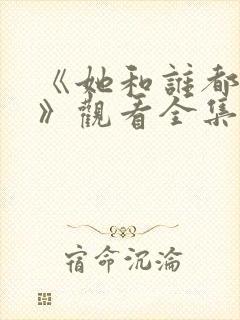 《她和誰都
》觀看全集
宿命沉淪